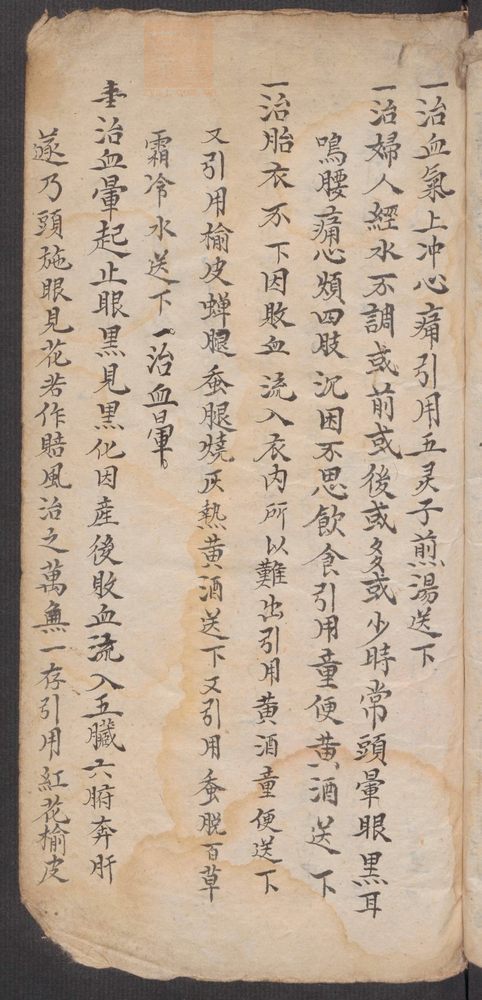 一治血氣上冲心痛引用五灵子煎湯送下
一治婦人經水不調或前或後或多或少時常頭暈眼黑耳
鳴腰痛心煩四肢沉困不思飲食引用童便黄酒送下
一治胎衣不下因敗血流入衣内所以難出引用黄酒童便送下
又引用榆皮蝉腿蚕腿燒灰熱黄酒送下又引用蚕脱百草
霜冷水送下一治血暈
治血暈起止眼黑見黑化因産後敗血流入五臟六腑奔肝
遂乃頭旋眼見花若作賠風治之萬無一存引用紅花榆皮